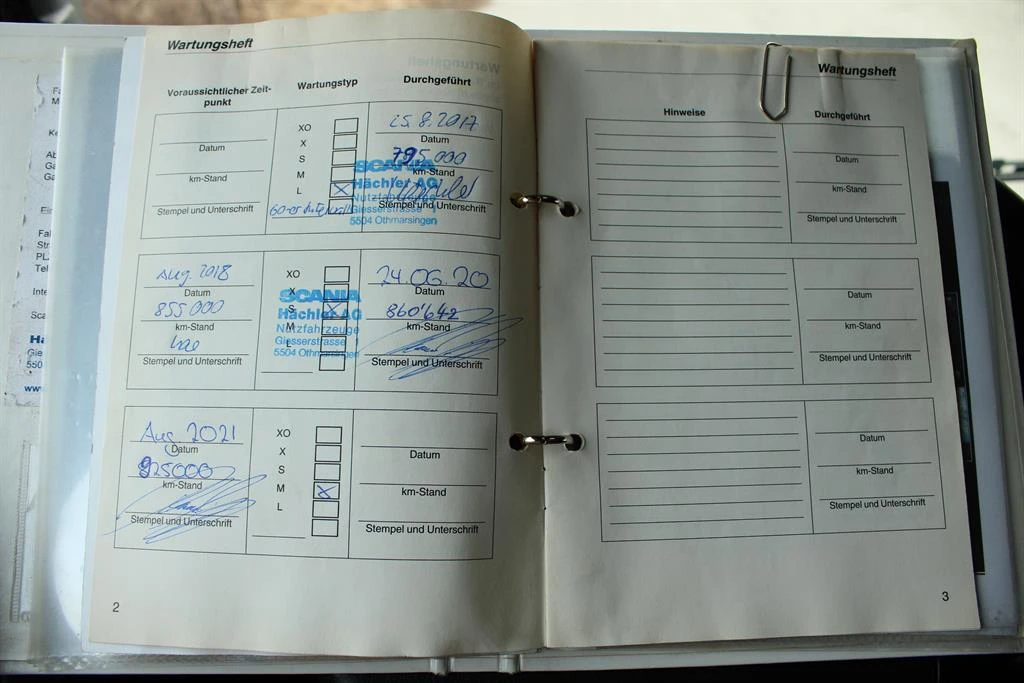 Wartungsheft
Voraussichtlicher Zeit-
punkt
Wartungstyp
Durchgeführt
Datum
km-Stand
XO
X
S
M
L
60-er
25.8.2017
Datum
795.000
km-Stand
Stempel und Unterschrift
SCANIA
Hächler AG
Nutzfahrzeuge
Giesserstrasse
5504 Othmarsingen
Aug. 2018
Datum
855000
km-Stand
Stempel und Unterschrift
XO
X
S
M
L
SCANIA
Hächler AG
Nutzfahrzeuge
Giesserstrasse
5504 Othmarsingen
24.06.20
Datum
860'642
km-Stand
Stempel und Unterschrift
Aug 2021
Datum
925000
km-Stand
Stempel und Unterschrift
XO
X
S
M
L
Datum
km-Stand
Stempel und Unterschrift
2
Wartungsheft
Hinweise
Durchgeführt
Datum
km-Stand
Stempel und Unterschrift
Datum
km-Stand
Stempel und Unterschrift
Datum
km-Stand
Stempel und Unterschrift
3